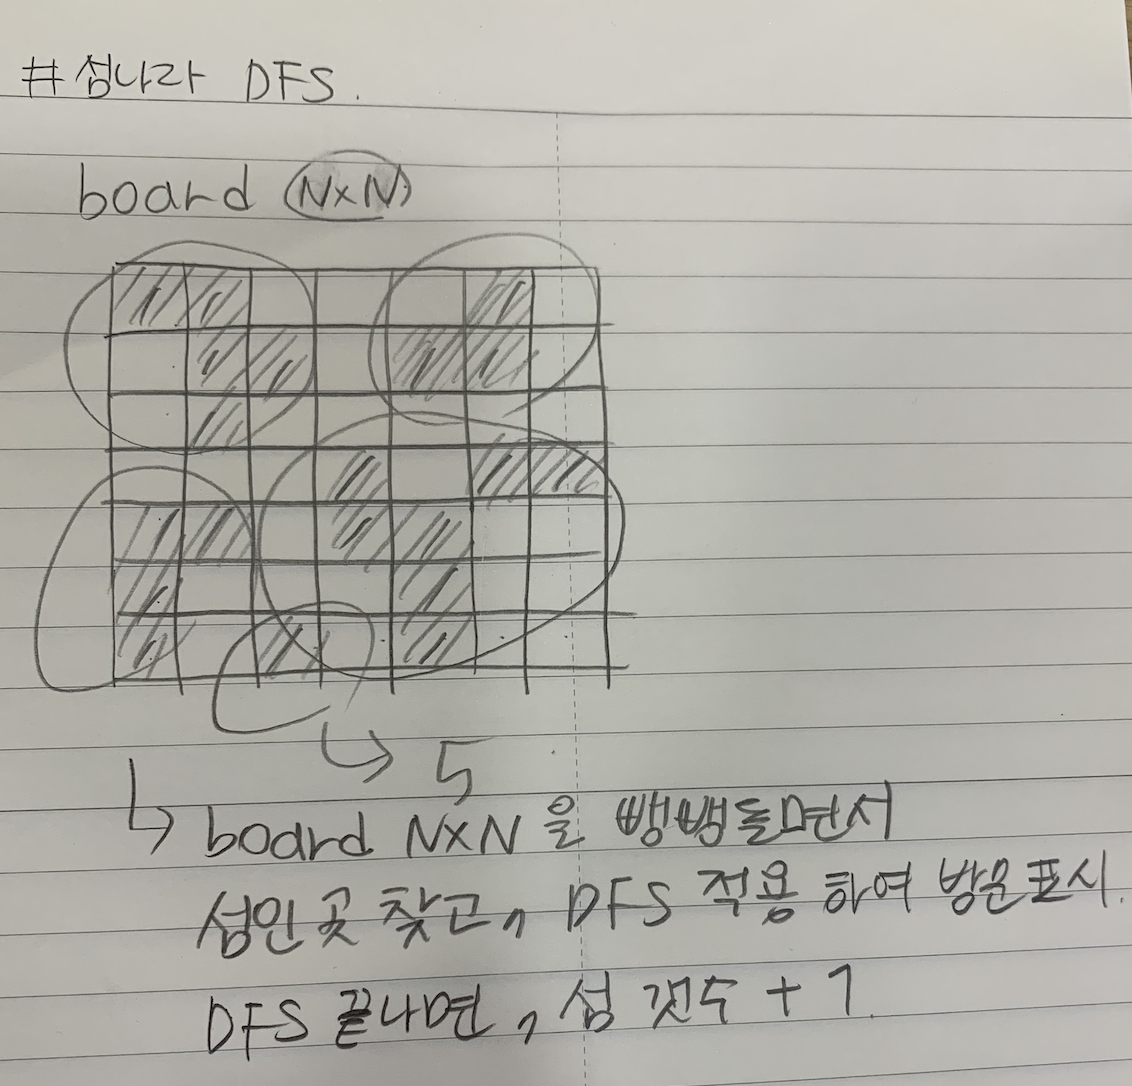 # 섬나라 DFS.
board (N×N)
↳ 5
↳ board N×N 을 뺑뺑돌면서
섬인 곳 찾고, DFS 적용 하여 방문표시.
DFS 끝나면, 섬 갯수 + 1.